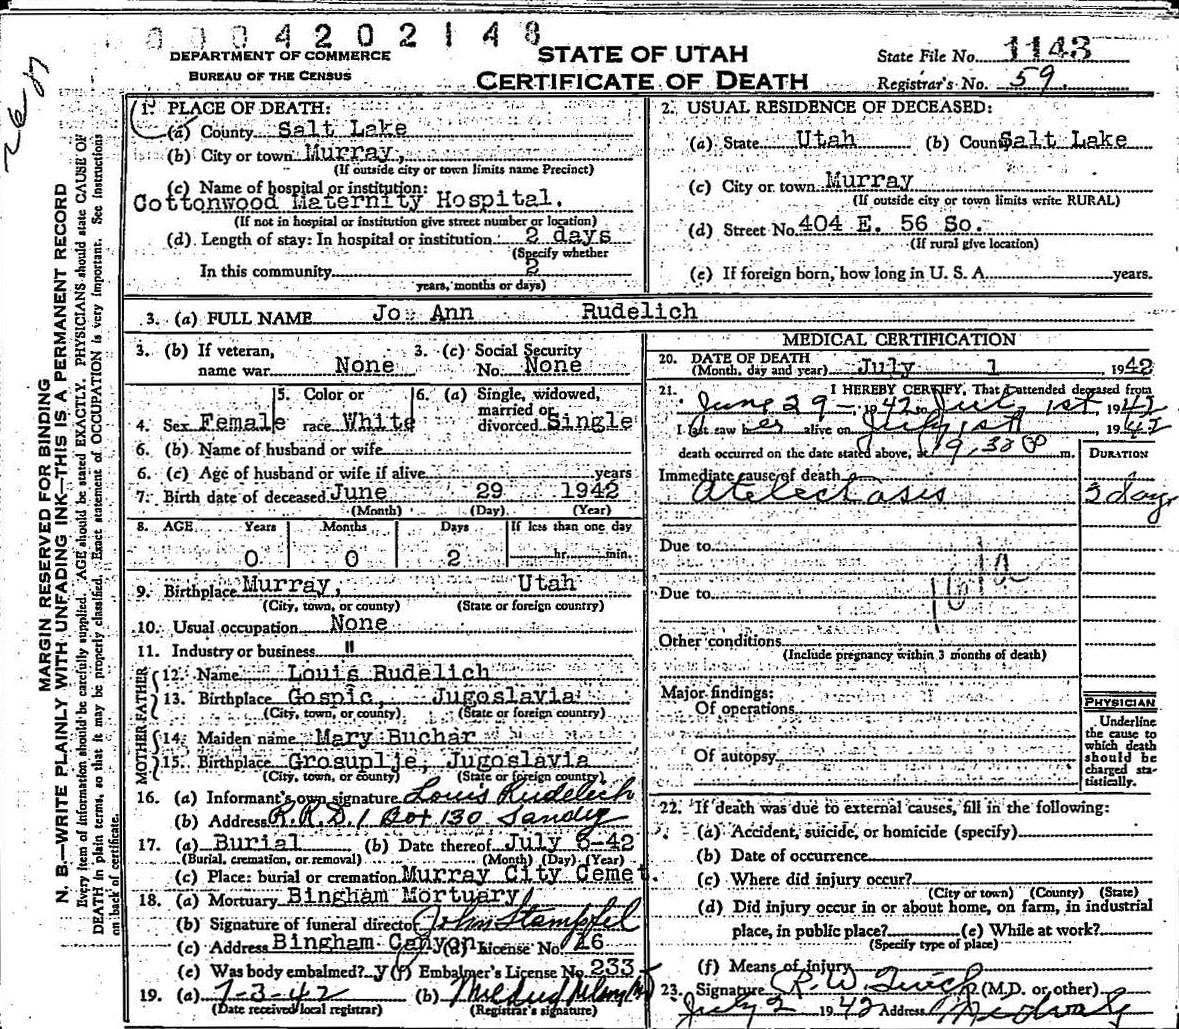 0004202148
DEPARTMENT OF COMMERCE
BUREAU OF THE CENSUS
STATE OF UTAH
CERTIFICATE OF DEATH
State File No. 1143
Registrar's No. 59.
MARGIN RESERVED FOR BINDING
N. B.—WRITE PLAINLY WITH UNFADING INK—THIS IS A PERMANENT RECORD
Every item of information should be carefully supplied. AGE should be stated EXACTLY. PHYSICIANS should state CAUSE OF
DEATH in plain terms, so that it may be properly classified. Exact statement of OCCUPATION is very important. See instructions
on back of certificate.
1. PLACE OF DEATH:
(a) County Salt Lake
(b) City or town Murray,
(If outside city or town limits name Precinct)
(c) Name of hospital or institution:
Cottonwood Maternity Hospital.
(If not in hospital or institution give street number or location)
(d) Length of stay: In hospital or institution 2 days
(Specify whether
In this community 2
years, months or days)
2. USUAL RESIDENCE OF DECEASED:
(a) State Utah (b) Coun Salt Lake
(c) City or town Murray
(If outside city or town limits write RURAL)
(d) Street No. 404 E. 56 So.
(If rural give location)
(e) If foreign born, how long in U. S. A. years.
3. (a) FULL NAME Jo Ann Rudelich
3. (b) If veteran, name war None
3. (c) Social Security No. None
4. Sex Female
5. Color or race White
6. (a) Single, widowed, married or divorced Single
6. (b) Name of husband or wife
6. (c) Age of husband or wife if alive years
7. Birth date of deceased June 29 1942
(Month) (Day) (Year)
8. AGE Years Months Days If less than one day
0 0 2 hr. min.
9. Birthplace Murray, Utah
(City, town, or county) (State or foreign country)
10. Usual occupation None
11. Industry or business "
FATHER
12. Name Louis Rudelich
13. Birthplace Gospic, Jugoslavia
(City, town, or county) (State or foreign country)
MOTHER
14. Maiden name Mary Buchar
15. Birthplace Grosuplje, Jugoslavia
(City, town, or county) (State or foreign country)
16. (a) Informant's own signature Louis Rudelich
(b) Address R.R.D. 1 Box 130 Sandy
17. (a) Burial (b) Date thereof July 6-42
(Burial, cremation, or removal) (Month) (Day) (Year)
(c) Place: burial or cremation Murray City Cemet.
18. (a) Mortuary Bingham Mortuary
(b) Signature of funeral director John Stampfel
(c) Address Bingham Canyon (d) License No. 26
(e) Was body embalmed? y (f) Embalmer's License No. 233
19. (a) 7-3-42 (b) Mildred
(Date received local registrar) (Registrar's signature)
MEDICAL CERTIFICATION
20. DATE OF DEATH
(Month, day and year) July 1 1942
21. I HEREBY CERTIFY, That I attended deceased from
June 29 - 1942 to July 1st, 1942
I last saw her alive on July 1st 1942
death occurred on the date stated above, at 9,30 P m.
DURATION
Immediate cause of death
Atelectasis
3 days
Due to
Due to
161a
Other conditions
(Include pregnancy within 3 months of death)
Major findings:
Of operations
Of autopsy
PHYSICIAN
Underline
the cause to
which death
should be
charged sta-
tistically.
22. If death was due to external causes, fill in the following:
(a) Accident, suicide, or homicide (specify)
(b) Date of occurrence
(c) Where did injury occur?
(City or town) (County) (State)
(d) Did injury occur in or about home, on farm, in industrial
place, in public place? (e) While at work?
(Specify type of place)
(f) Means of injury
23. Signature R. W. (M.D. or other)
July 2 1942 Address Midvale